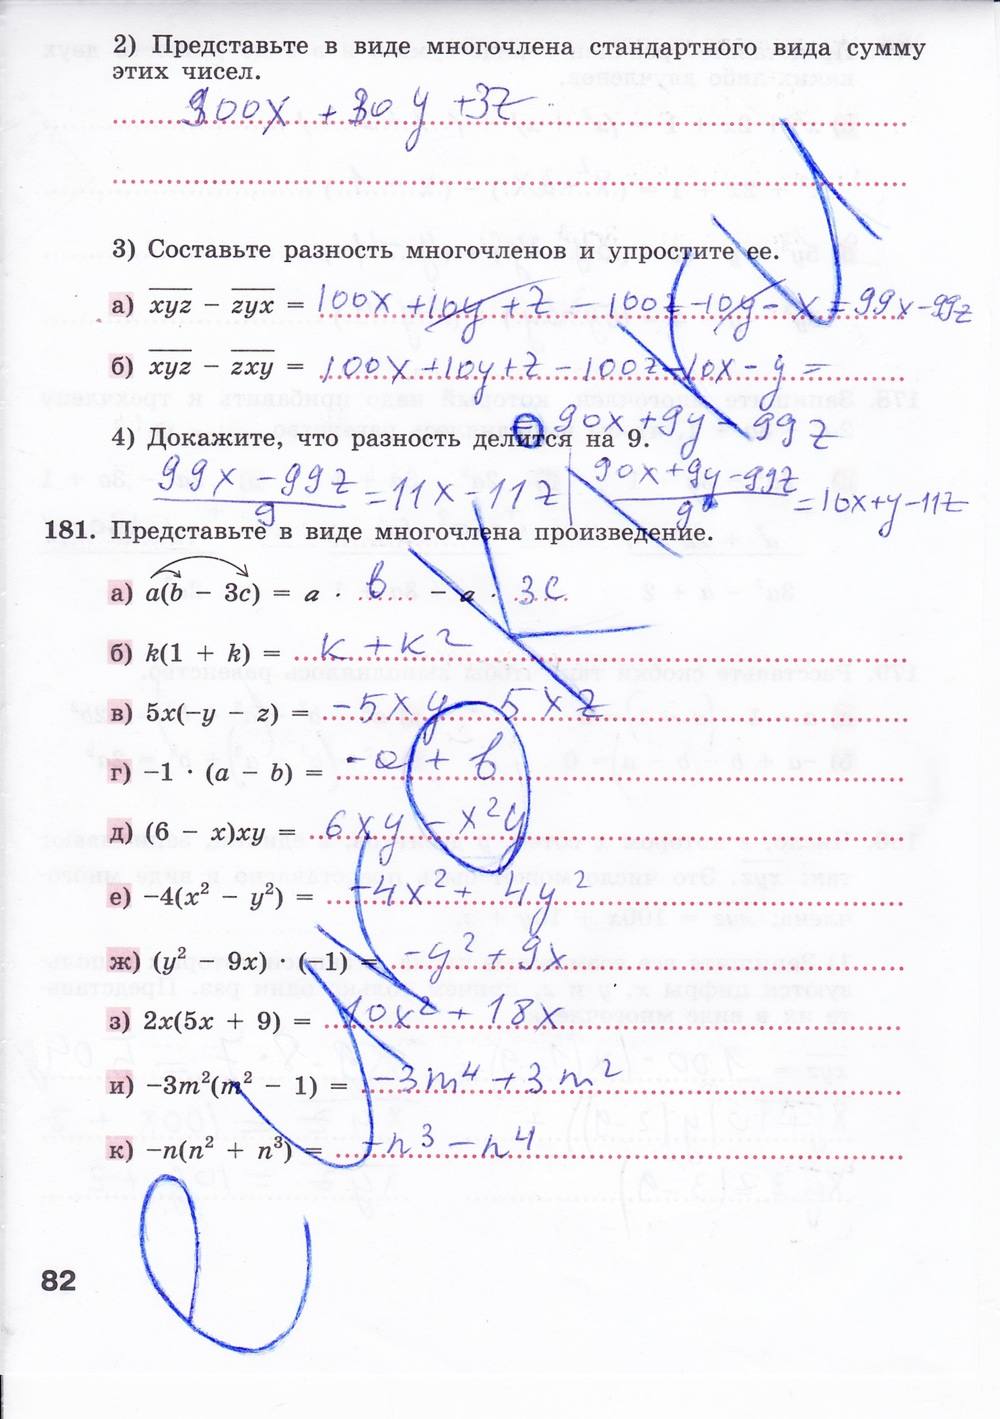 2) Представьте в виде многочлена стандартного вида сумму
этих чисел.
300x + 30y + 3z
3) Составьте разность многочленов и упростите ее.
а) xyz − zyx = 100x + 10y + z − 100z − 10y − x = 99x − 99z
б) xyz − zxy = 100x + 10y + z − 100z − 10x − y =
= 90x + 9y − 99z
4) Докажите, что разность делится на 9.
99x − 99z / 9 = 11x − 11z | 90x + 9y − 99z / 9 = 10x + y − 11z
181. Представьте в виде многочлена произведение.
а) a(b − 3c) = a · b − a · 3c
б) k(1 + k) = k + k²
в) 5x(−y − z) = −5xy − 5xz
г) −1 · (a − b) = −a + b
д) (6 − x)xy = 6xy − x²y
е) −4(x² − y²) = −4x² + 4y²
ж) (y² − 9x) · (−1) = −y² + 9x
з) 2x(5x + 9) = 10x² + 18x
и) −3m²(m² − 1) = −3m⁴ + 3m²
к) −n(n² + n³) = −n³ − n⁴
82